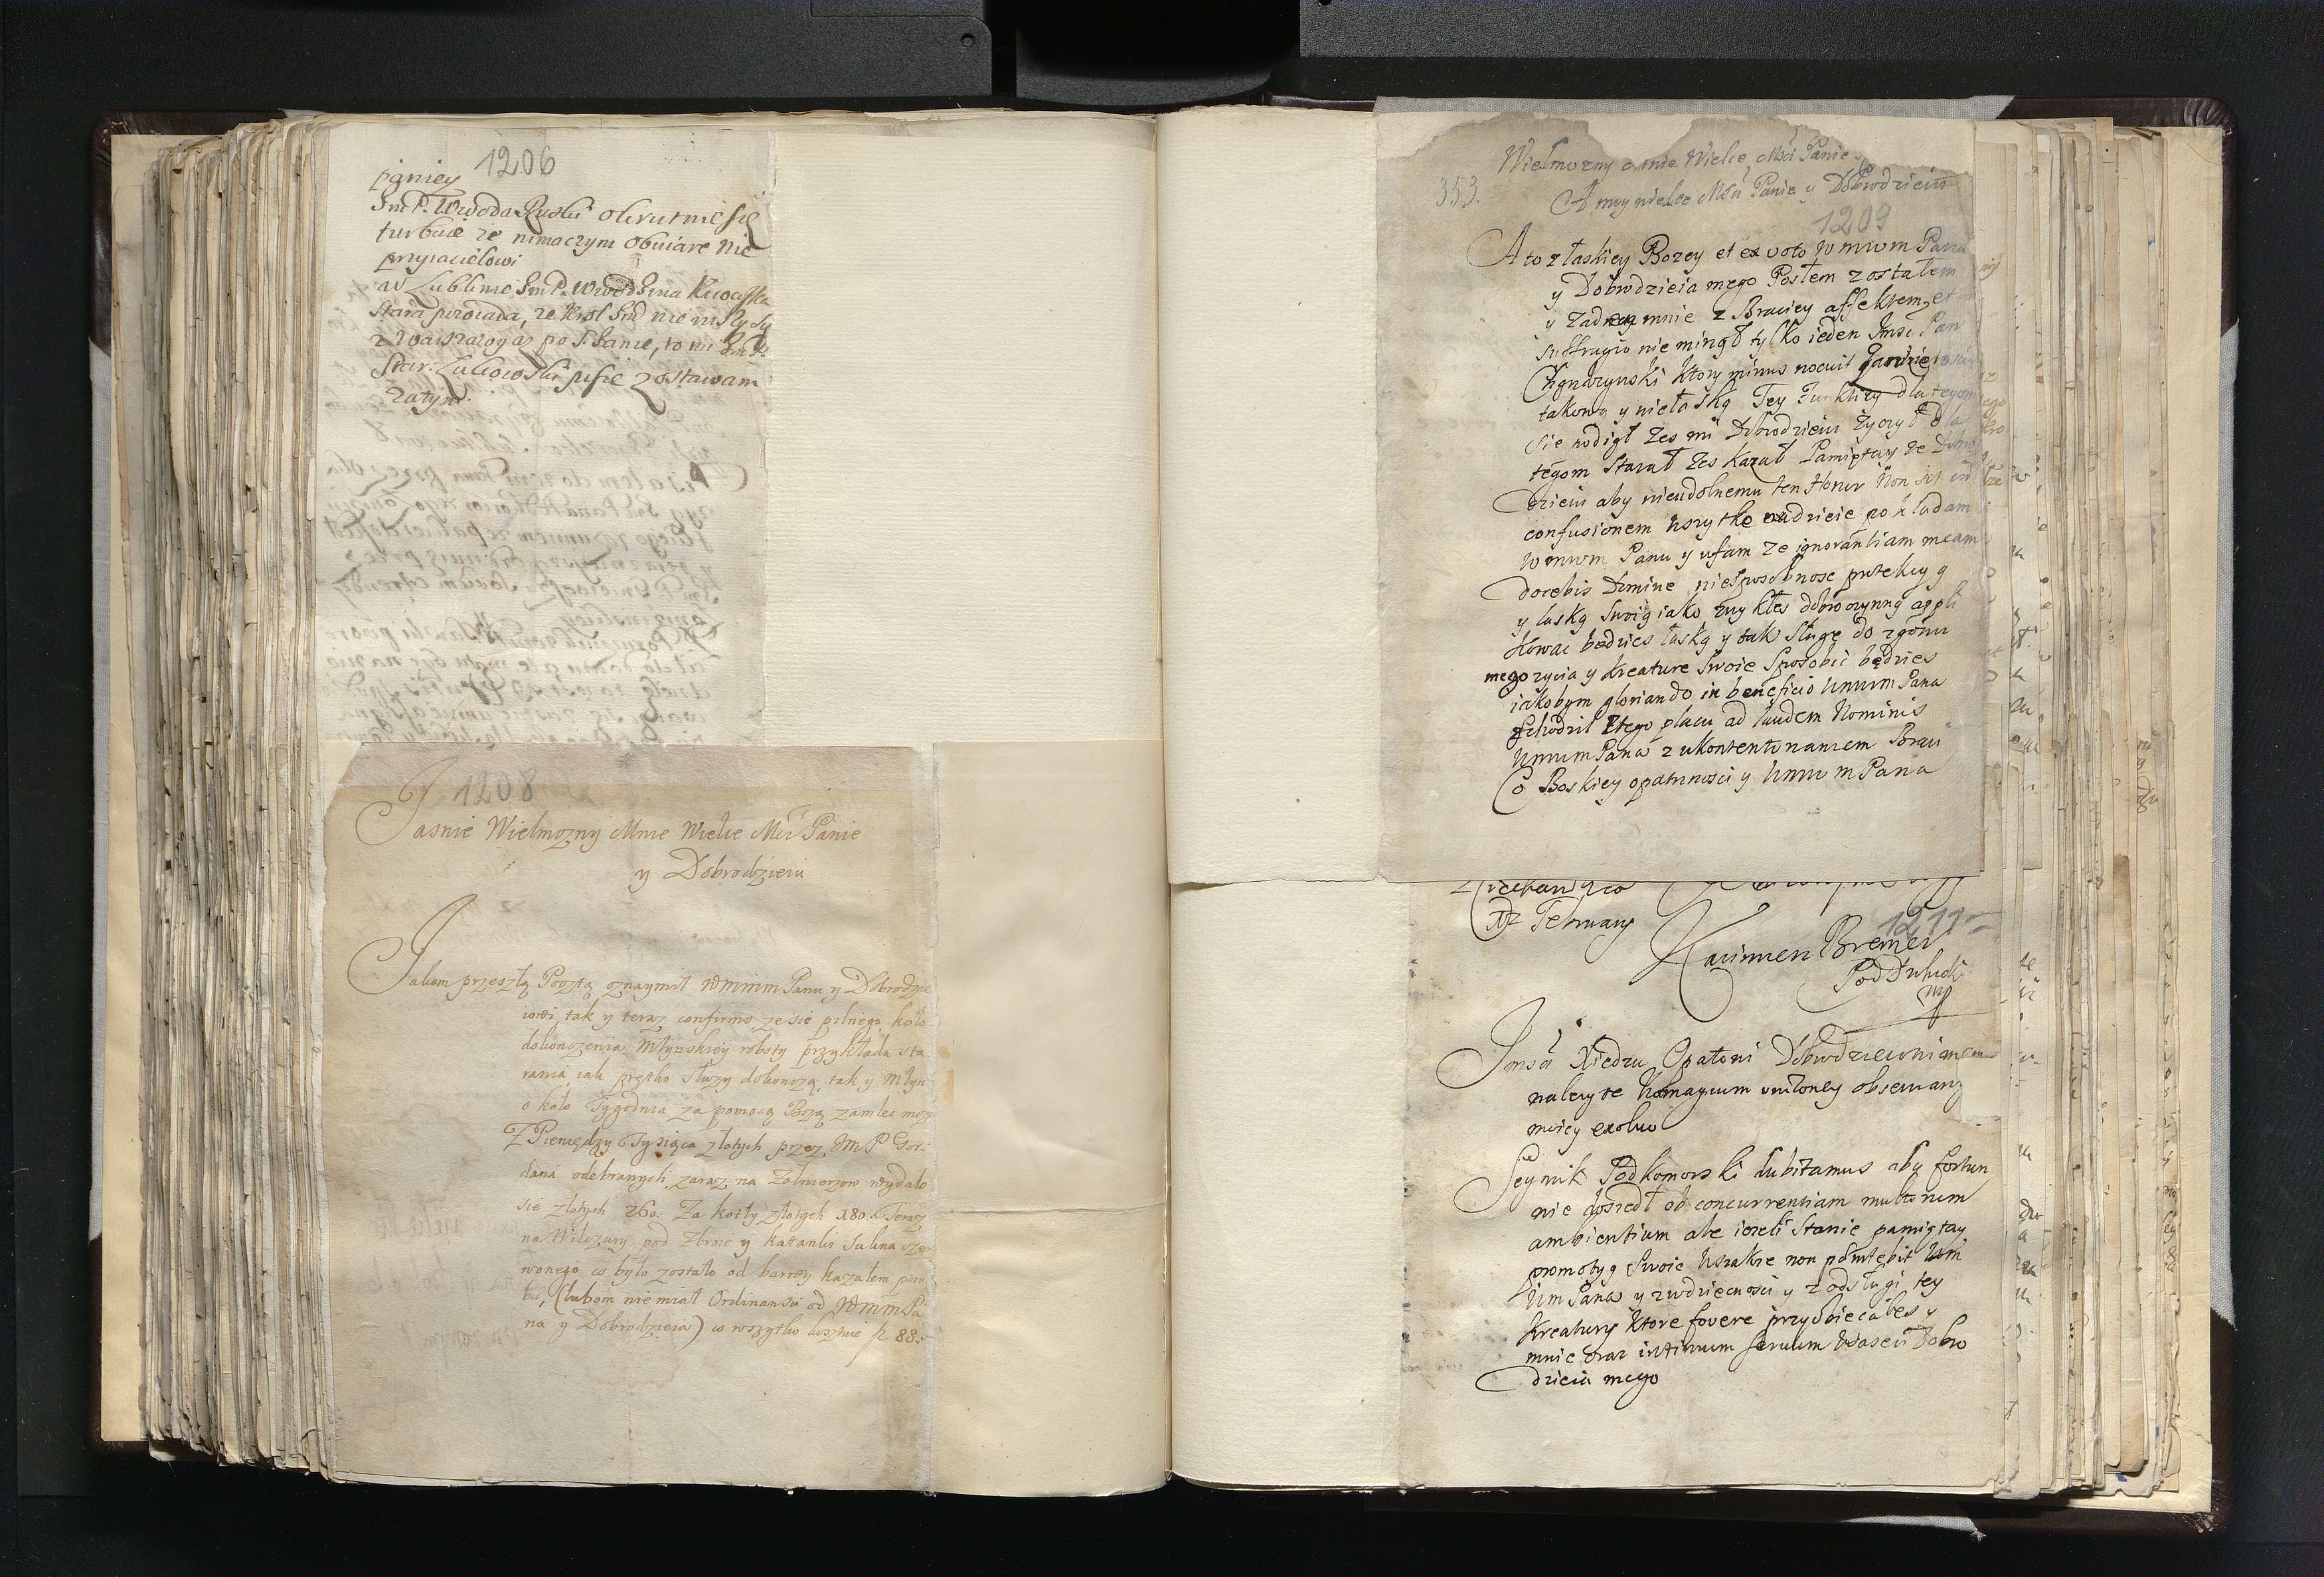 1206
pańiey
JmP. Wwoda Ruski okrutnie się
turbuie ze nimaczym obwiare nie
przyiacielowi
w Lublinie JmP. Wwodzina Kiiowska
stara powiada, ze Krol Jmć nie myśli się
z Warszawy az po S. Janie, to mi JmP.
Star. Lukowski pisze zostawam
zatym.
1208
Jasnie Wielmozny Mnie Wielce Mći Panie
y Dobrodzieiu
Jakom przeszłą Pocztą oznaymił WmmmPanu y Dobrodzie
iowi tak y teraz confirmo, ze sie pilnego koło
dokonczenia Młynskiey roboty przykłada sta
rania, iak prętko Sluzy dokonczą, tak y Młyn
około Tygodnia za pomocą Bożą zamlec moze
Z Pieniędzy Tysiąca złotych przez JmP Gor:
dana odebranych, zaraz na Zolnierzow wydało
sie złotych 260. Za kotły złotych 180. Teraz
na Wilczury pod Zbroie y kaftanki Sukna czer
wonego, co było zostało od barwy kazałem
(lubom nie miał Ordinansu od WmmPa
na y Dobrodzieia) co wszytko kosztuie f 88.
353.
Wielmozny a mnie Wielce Mści Panie
A moy wielce Mści Panie y Dobrodzieiu
1209
A to z łaskiey Bozey et ex voto WmwmPana
y Dobrodzieia mego Posłem zostałem
y zadney mnie z Braciey affektem, et
suffragio nie minął tylko ieden Jmść Pan
Ktory minus nocuit
y niełaską Tey Funktiey dla tegom
sie podiął zes mi Dobrodzieiu Zyczył dla
tegom starał zes kazał Pamiętay ze Dobro
dzieiu aby nieudolnemu ten Honor Non sit in
confusionem wszytkę nadzieie pokładam
w mwm Panu y ufam ze ignorantiam meam
docebis Domine niesposobnosc
y łaską Swoią iako zwykłes dobroczynną appli
kować będzies łaską y tak Sługę do zgonu
mego zycia y kreature Swoie Sposobić będzies
iakobym gloriando in beneficio WmwmPana
schodził z tego placu ad laudem Nominis
WmwmPana z ukontentowaniem Braci
Co Boskiey opatrznosci y WmwmPana
z Ciechanowca
12 Februarÿ
1211
Kazimierz Bremer
mp
Jmśći Xiędzu Opatowi Dobrodzieiowi memu
nalezyte Homagium observancy
moiey exoluo
Seymik Podkomorski dubitamus aby fortun
nie doszedł ob concurrentiam multorum
ambientium ale iezeli Stanie pamiętay
promotyą Swoie Wszakze non
WmPana y zwdziecznosci y z odsługi tey
Kreatury ktore fovere przyobiecałes y
mnie oraz intimum seruum Wasci Dobro
dzieia mego